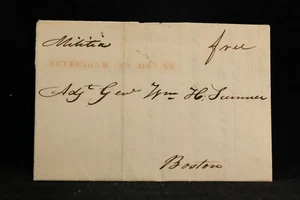 Militia free
PETERSHAM
Adjt Genl Wm H. Sumner
Boston